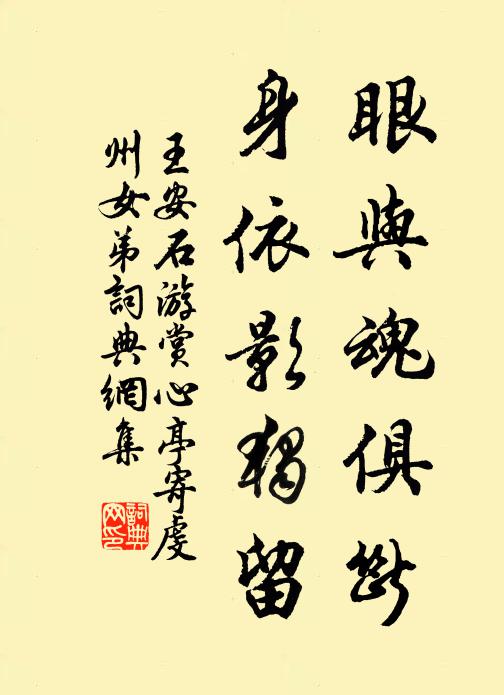 眼與魂俱斷
身依影獨留
王安石游賞心亭寄虔
州女弟詞典網集
詞典
网印